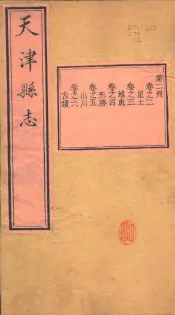 天津縣志
第二冊
卷之二
星土
卷之三
城輿
卷之四
形勝
卷之五
山川
卷之六
古蹟